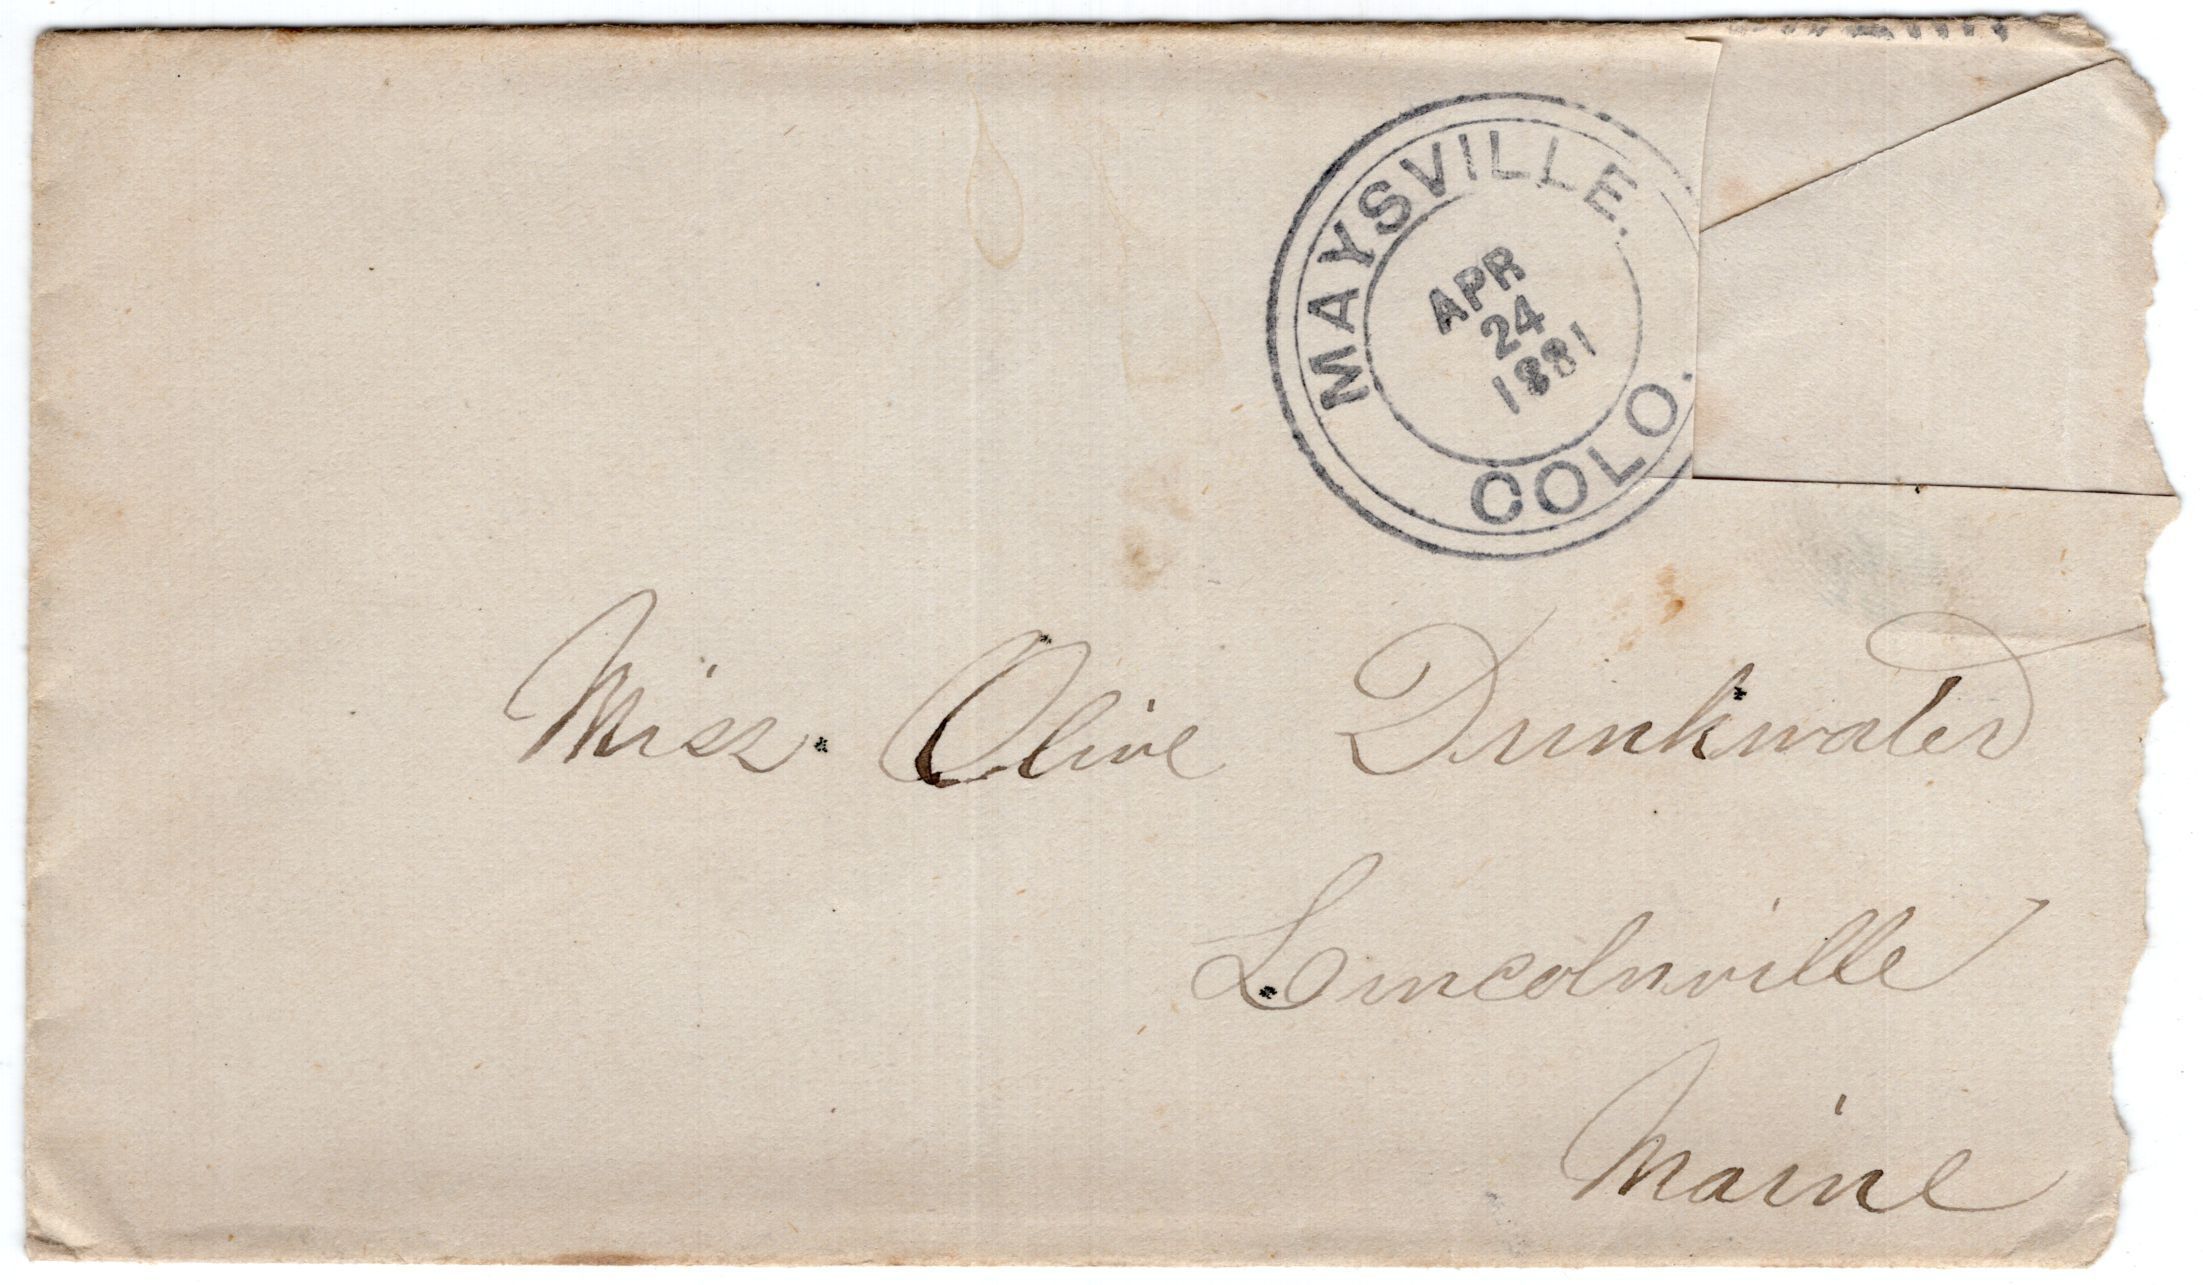 MAYSVILLE.
COLO.
APR
24
1881
Miss. Olive Drinkwater
Lincolnville
Maine